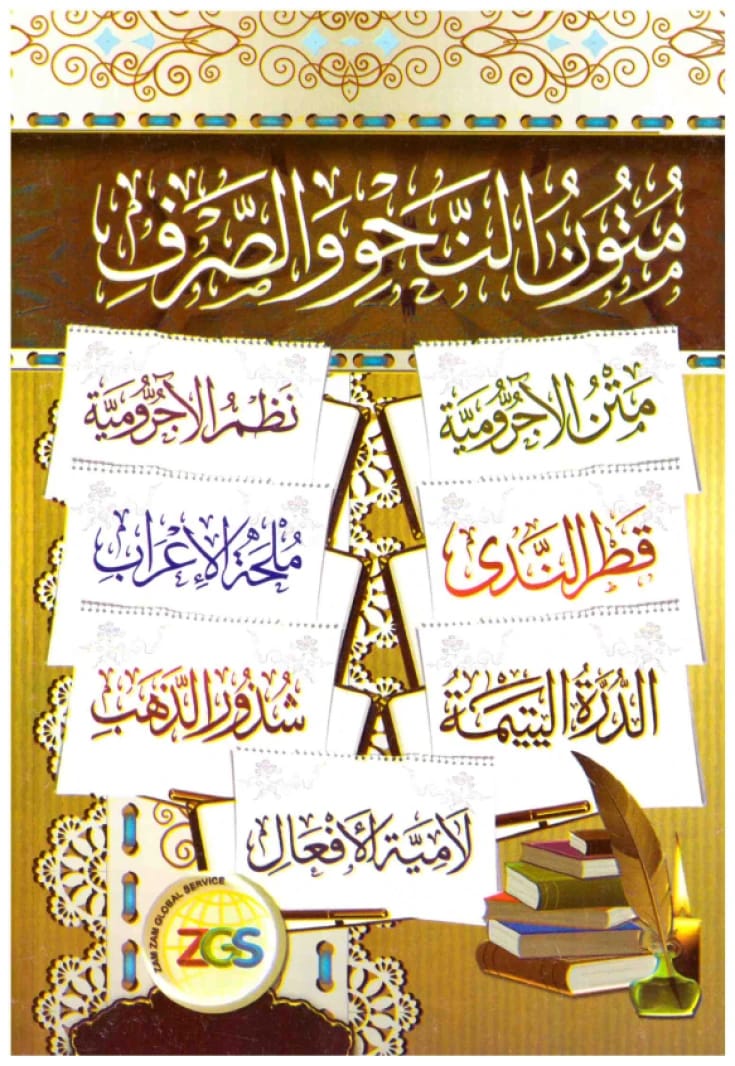 مُتُونُ النَّحْوِ وَالصَّرْفِ
مَتْنُ الآجُرُّومِيَّةِ
نَظْمُ الآجُرُّومِيَّةِ
قَطْرُ النَّدَى
مُلْحَةُ الإِعْرَابِ
الدُّرَّةُ الْيَتِيمَةُ
شُذُورُ الذَّهَبِ
لَامِيَّةُ الأَفْعَالِ
ZAM ZAM GLOBAL SERVICE
ZGS